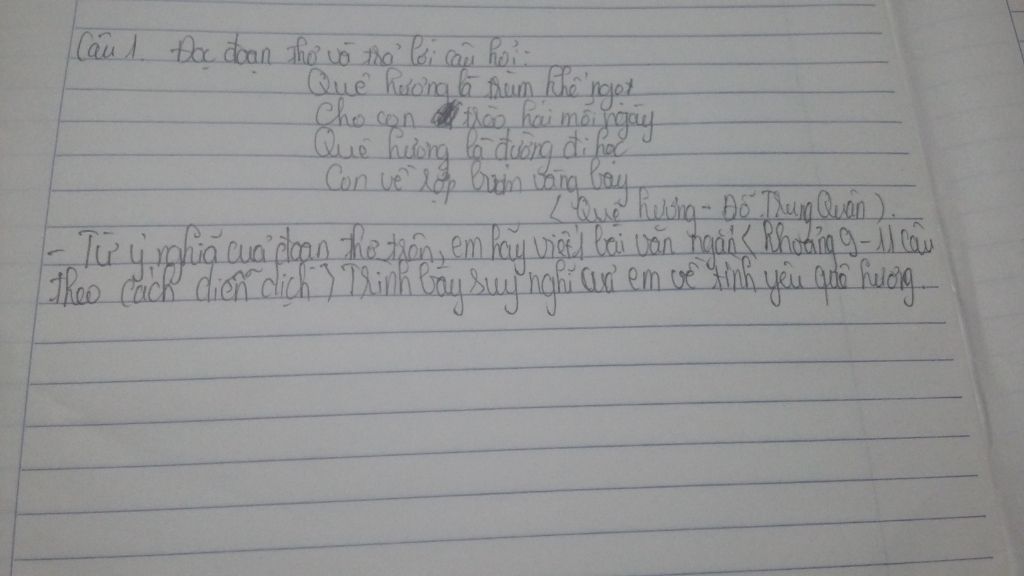 Câu 1. Đọc đoạn thơ và trả lời câu hỏi:
Quê hương là chùm khế ngọt
Cho con trèo hái mỗi ngày
Quê hương là đường đi học
Con về rợp bướm vàng bay
(Quê hương - Đỗ Trung Quân).
- Từ ý nghĩa của đoạn thơ trên, em hãy viết 1 bài văn ngắn (khoảng 9-11 câu
theo cách diễn dịch) Trình bày suy nghĩ của em về tình yêu quê hương